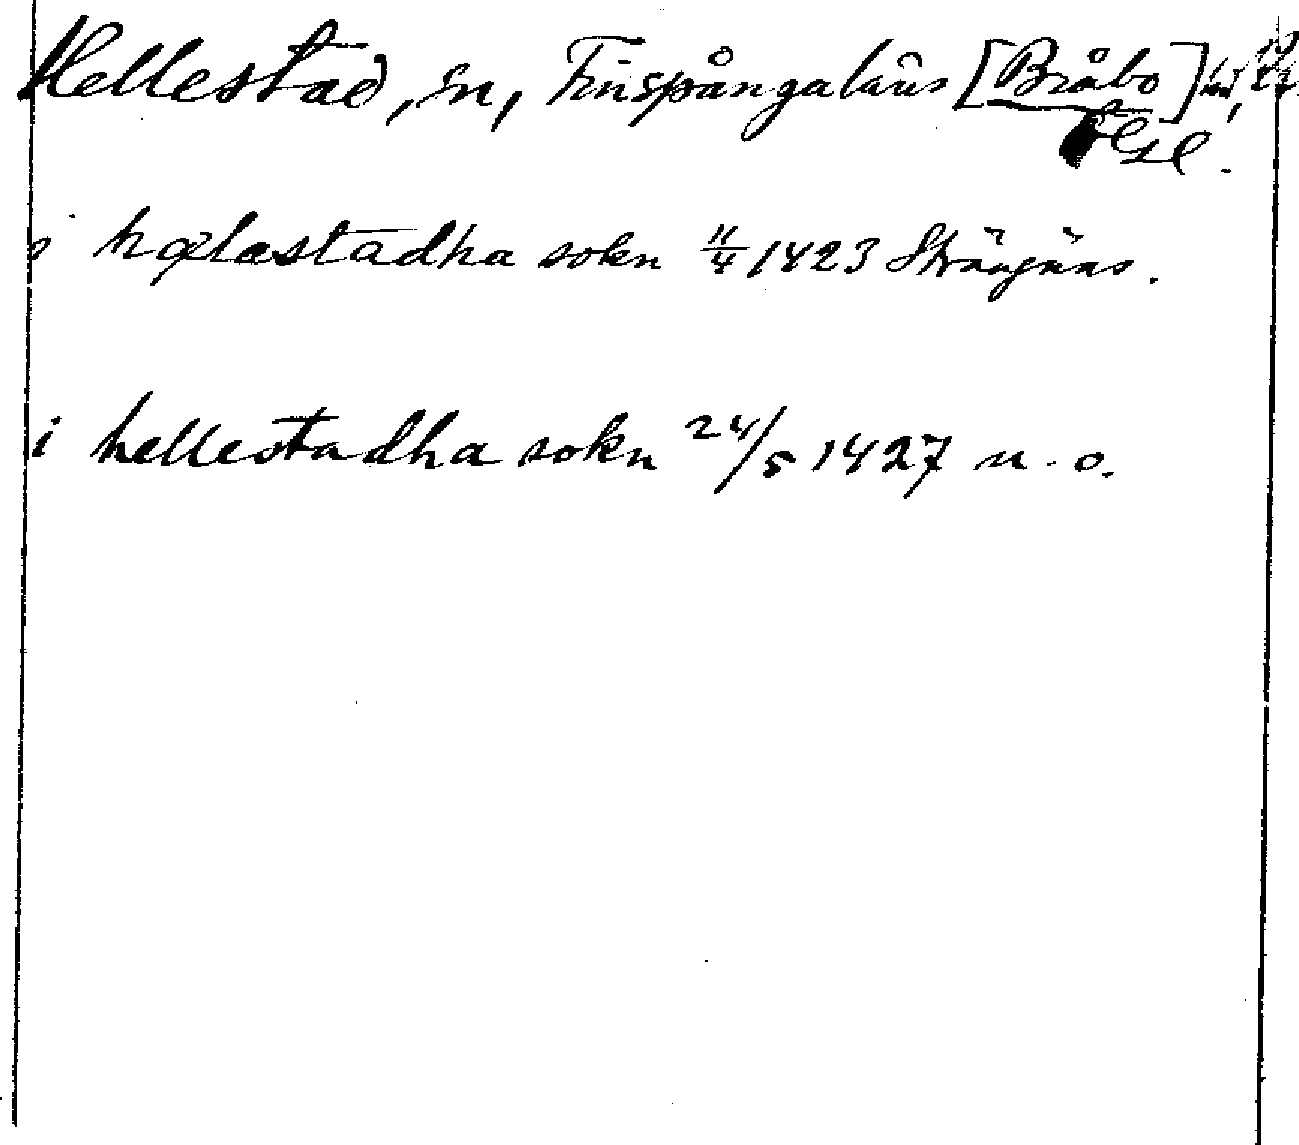 Hellestad, sn, Finspångaläns [Bråbo] hd,
Ögl.
i hælæstadha sokn 11/4 1423 Strängnäs.
i hellestadha sokn 24/5 1427 n. o.